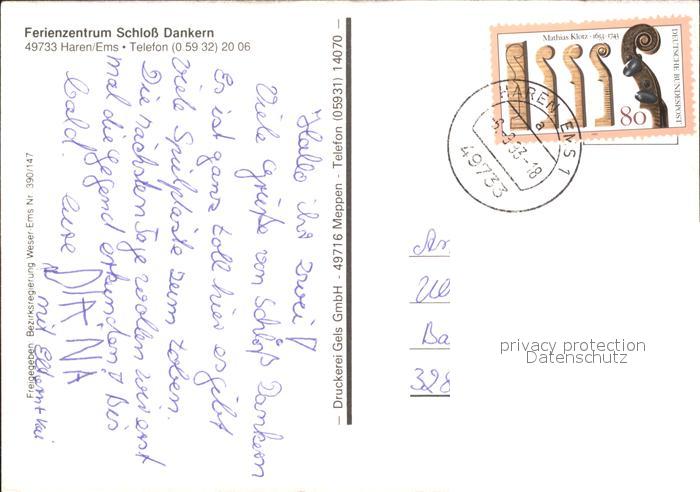 Ferienzentrum Schloß Dankern
49733 Haren/Ems • Telefon (0 59 32) 20 06
Hallo ihr zwei!
Viele Grüße von Schloß Dankern
Es ist ganz toll hier es gibt
viele Spielplätze zum toben.
Die nächsten Tage wollen wir erst
mal die Gegend erkunden! Bis
bald. eure
DIANA
mit Eltern + Kai
Freigegeben Bezirksregierung Weser-Ems Nr. 390/147
— Druckerei Gels GmbH - 49716 Meppen - Telefon (05931) 14070 —
Mathias Klotz · 1653-1743
DEUTSCHE BUNDESPOST
80
HAREN, EMS 1
a
-18
49733
An
Ba
328
privacy protection
Datenschutz